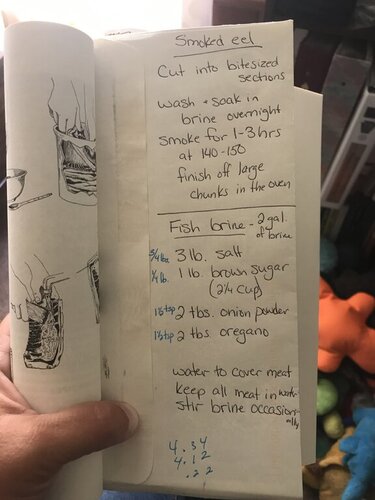 Smoked eel
Cut into bitesized
sections
wash + soak in
brine overnight
smoke for 1-3hrs
at 140-150
finish off large
chunks in the oven
Fish brine - 2 gal.
of brine
3/4 lbs 3 lb. salt
1/4 lb. 1 lb. brown sugar
(2 1/4 cup)
2 tbs. onion powder
2 tbs oregano
water to cover meat
keep all meat in
stir brine occasionally
4 . 34
4 . 12
. 22